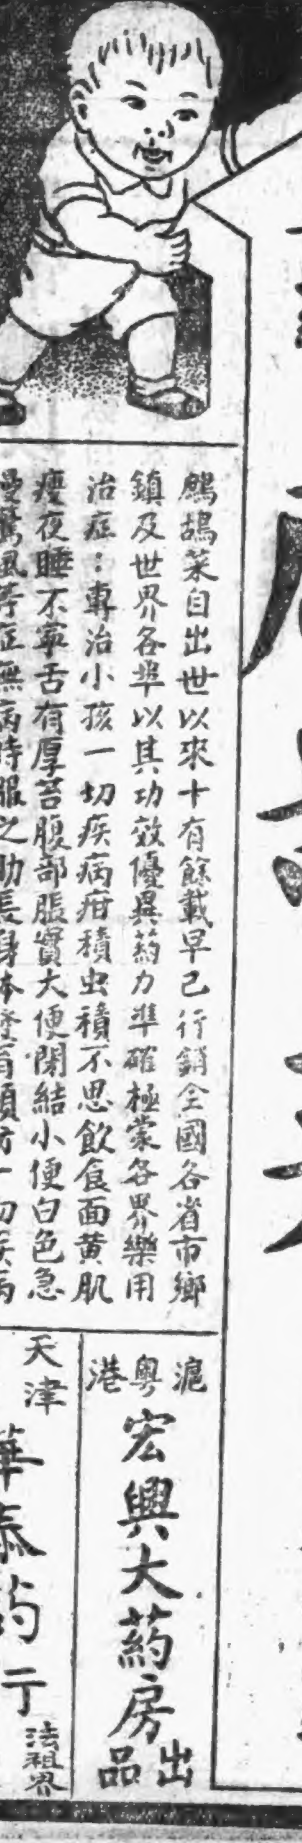 鷓鴣菜自出世以來十有餘載早已行銷全國各省市鄉
鎮及世界各埠以其功效優異葯力準確極蒙各界樂用
治症：專治小孩一切疾病疳積虫積不思飲食面黄肌
瘦夜睡不寧舌有厚苔腹部脹實大便閉結小便白色急
慢驚風等症無病時服之助長身体發育預防一切疾病
滬
粵
港
宏興大葯房
出品
天津
華泰葯行
法租界